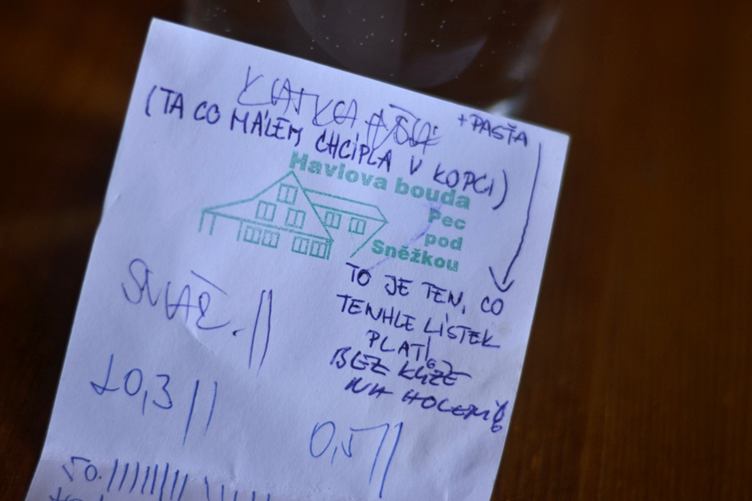 KAŤKA + ĎAĎA
+ PAŠŤA
(TA CO MÁLEM CHCÍPLA V KOPCI)
Havlova bouda
Pec
pod
Sněžkou
TO JE TEN, CO
TENHLE LÍSTEK
PLATÍ
BEZ KŮŽE
NA HOLENI
SVAŘ. ||
10,3 ||
0,5 ||
50. ||||||||